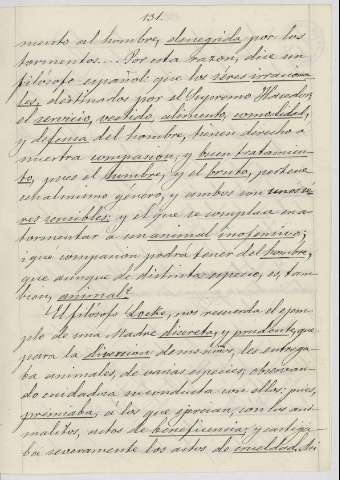 131.
mento al hombre, denegrido por los
tormentos... Por esta razon, dice un
filósofo español que los seres irraciona
les, destinados por el Supremo Hacedor,
el servicio, vestido, alimento, comodidad,
y defensa del hombre, tienen derecho a
nuestra compasion; y buen tratamien-
to, pues el hombre, y el bruto, pertene
al mismo género, y ambos son
res sensibles: y el que se complace en a
tormentar a un animal inofensivo;
¿que compasion podrá tener del hombre,
que aunque de distinta especie, es, tam
bien, animal?
El filósofo Locke, nos recuerda el ejem
plo de una Madre discreta, y prudente, que
para la diversion de sus niños, les entrega
ba animales, de varias especies; observan-
do cuidadosa su conducta con ellos: pues,
premiaba, á los que ejercian, con los ani
malitos, actos de beneficencia; y castiga-
ba severamente los actos de crueldad.